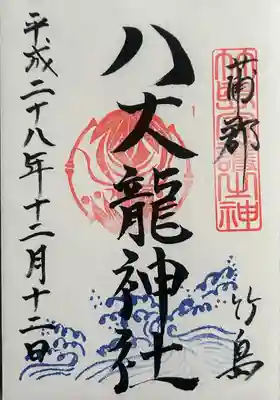 蒲郡
竹島
八大龍神社
平成二十八年十二月十二日